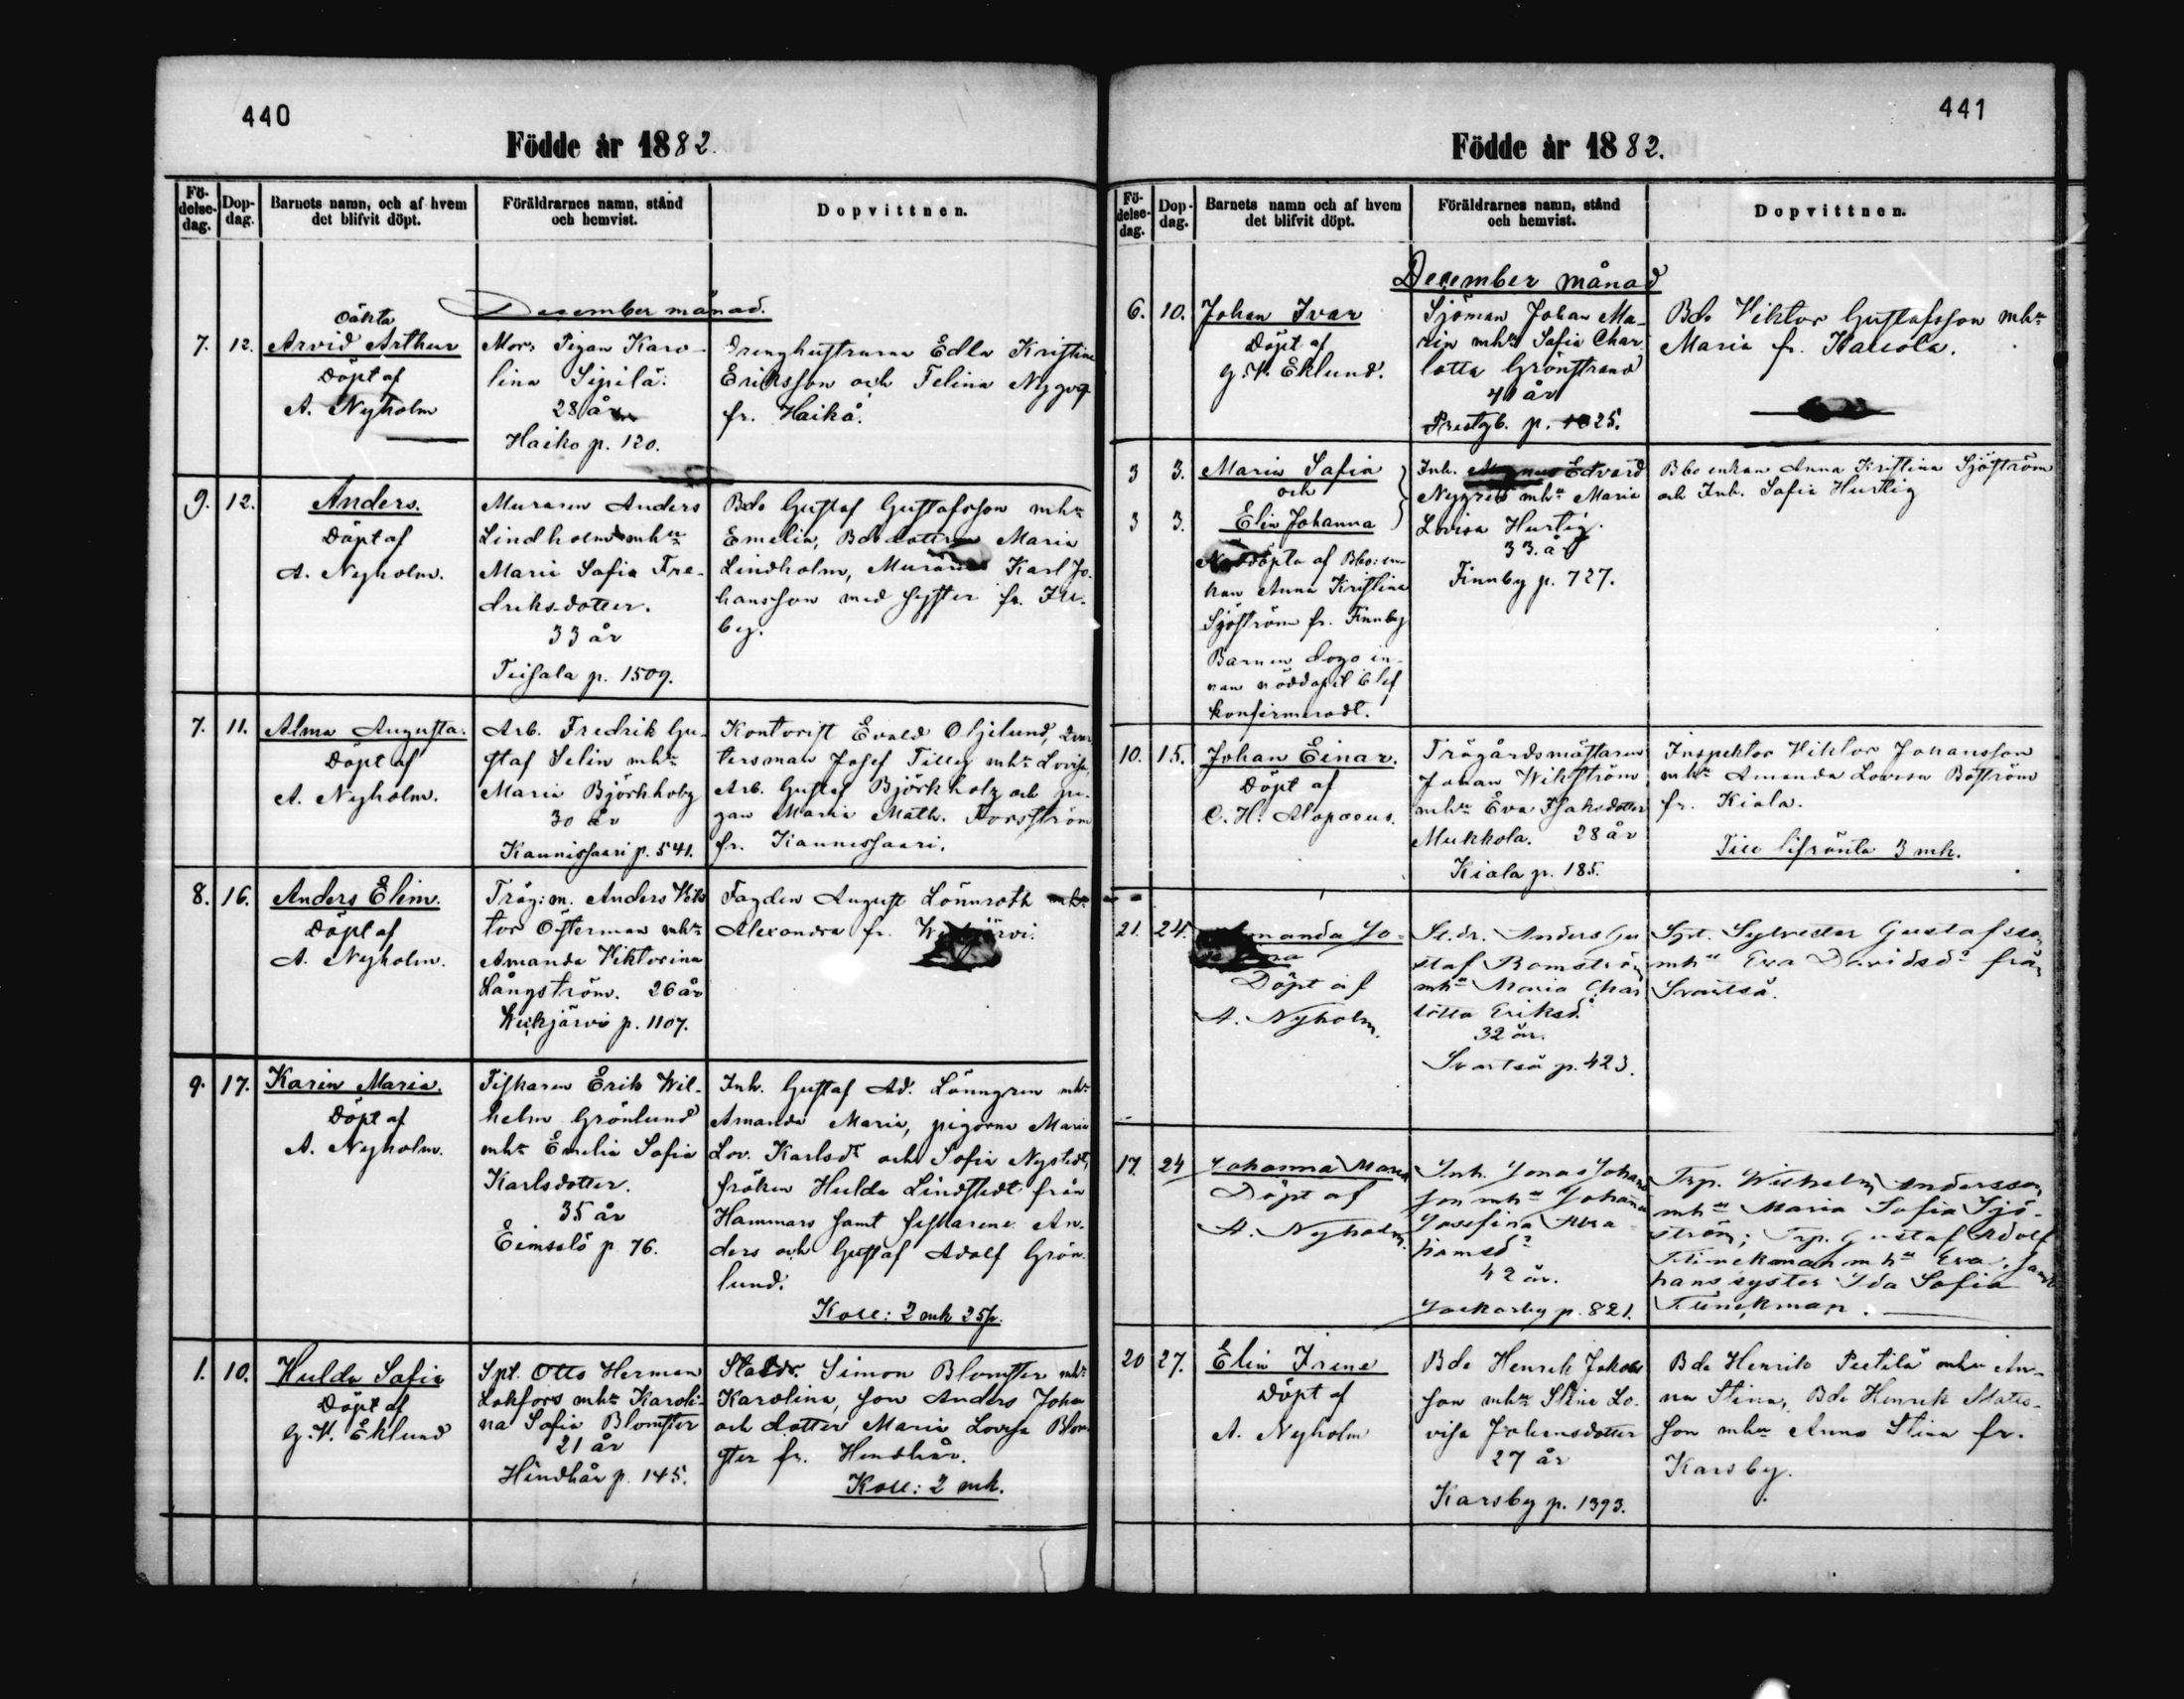 440
Födde år 1882.
Fö-
delse-
dag.
Dop-
dag.
Barnets namn, och af hvem
det blifvit döpt.
Föräldrarnes namn, stånd
och hemvist.
Dopvittnen.
December månad.
7. 12.
Oäkta
Arvid Arthur
Döpt af
A. Nyholm
Mor: Pigan Karo-
lina Sipilä.
28 år
Haiko p. 120.
Drenghustrurna Edla Kristina
Eriksson och Felina
fr. Haikå.
9. 12.
Anders.
Döpt af
A. Nyholm.
Muraren Anders
Lindholm mhu
Maria Sofia Fre-
driksdotter.
33 år
Teisala p. 1509.
Bdo Gustaf Gustafsson mhu
Emelia, Bdo dottern Maria
Lindholm, Muraren Karl Jo-
hansson med syster fr. Ill-
by.
7. 11.
Alma Augusta.
Döpt af
A. Nyholm.
Arb. Fredrik Gu-
staf Selin mhu
Maria Björkholz
30 år
Kaunissaari p. 541.
Kontorist Evald Öhjelund,
tersman Josef Tilley mhu Lovisa,
Arb. Gustaf Björkholz och pi-
gan Maria Math. Forsström
fr. Kaunissaari.
8. 16.
Anders Elim.
Döpt af
A. Nyholm.
Träg:m. Anders Vik
tor Österman mhu
Amanda Viktorina
Långström. 26 år
Veckjärvi p. 1107.
Fagden August Lönnroth mhu
Alexandra fr.
9. 17.
Karin Maria.
Döpt af
A. Nyholm.
Fiskaren Erik Wil-
helm Grönlund
mhu Emelia Sofia
Karlsdotter.
35 år
Eimsalö p. 76.
Inh. Gustaf Ad. Lönngren mhu
Amanda Maria, pigorna Maria
Lov. Karlsdr och Sofia Nystedt,
fröken Hulda Lindstedt från
Hammars samt fiskarene An-
ders och Gustaf Adolf Grön-
lund.
Koll: 2 mk 25 p.
1. 10.
Hulda Sofia
Döpt af
G. V. Eklund
Spt. Otto Herman
Lokfors mhu Karoli-
na Sofia Blomster
21 år
Hindhår p. 145.
Simon Blomster mhu
Karolina, son Anders Johan
och dotter Maria Lovisa Blom-
ster fr. Hindhår.
Koll: 2 mk.
441
Födde år 1882.
Fö-
delse-
dag.
Dop-
dag.
Barnets namn och af hvem
det blifvit döpt.
Föräldrarnes namn, stånd
och hemvist.
Dopvittnen.
December månad
6. 10.
Johan Ivar
Döpt af
G. V. Eklund.
Sjöman Johan Ma-
rin mhu Sofia Char
lotta Grönstrand
41 år
Prestgb. p. 1025.
Bdo Viktor Gustafsson mhu
Maria fr. Kallola.
3 3.
Maria Sofia
och
3 3.
Elin Johanna
Nöddöpta af Bbo: en-
kan Anna Kristina
Sjöström fr. Finnby
Barnen dogo in-
nan nöddopet blef
konfirmeradt.
Inh. Edvard
Nygren mhu Maria
Lovisa Hurtig.
33 år
Finnby p. 727.
Bbo enkan Anna Kristina Sjöström
och Inh. Sofia Hurtig
10. 15.
Johan Einar.
Döpt af
C. H. Alopaeus.
Trägårdsmästaren
Johan Wikström
mhu Eva Isaksdotter
Mukkola. 28 år
Kiala p. 185.
Inspektor Viktor Johansson
mhu Amanda Lovisa Boström
fr. Kiala.
Till lifränta 3 mk.
21. 24.
Amanda Jo-
Döpt af
A. Nyholm.
Anders Gu
staf Bomström
mhu Maria Char
lotta Eriksd.
32 år.
Svartså p. 423.
Spt. Sylvester Gustafsson
mhu Eva Davidsdr från
Svartså.
17. 24
Johanna Maria
Döpt af
A. Nyholm.
Inh. Jonas Johans
son mhu Johanna
Josefina Abra-
hamsdr
42 år.
Jackarby p. 821.
Trp. Wilhelm Andersson
mhu Maria Sofia Sjö-
ström; Trp. Gustaf Adolf
Flinckman mhu Eva, samt
hans syster Ida Sofia
Flinckman.
20 27.
Elin Irene
Döpt af
A. Nyholm
Bde Henrik Jakobs
son mhu Stina Lo-
visa Johansdotter
27 år
Karsby p. 1393.
Bde Henrik Peetilä mhu An-
na Stina, Bde Henrik Mats-
son mhu Anna Stina fr.
Karsby.